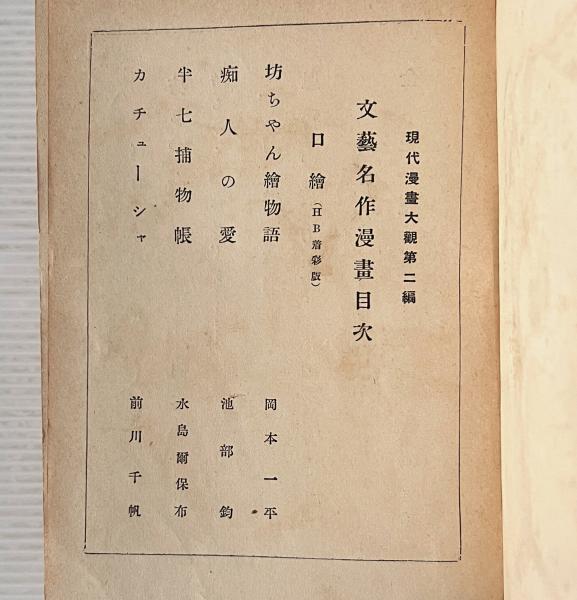 現代漫畫大觀第二編
文藝名作漫畫目次
口繪(HB着彩版)
坊ちやん繪物語 岡本一平
痴人の愛 池部鈞
半七捕物帳 水島爾保布
カチューシャ 前川千帆